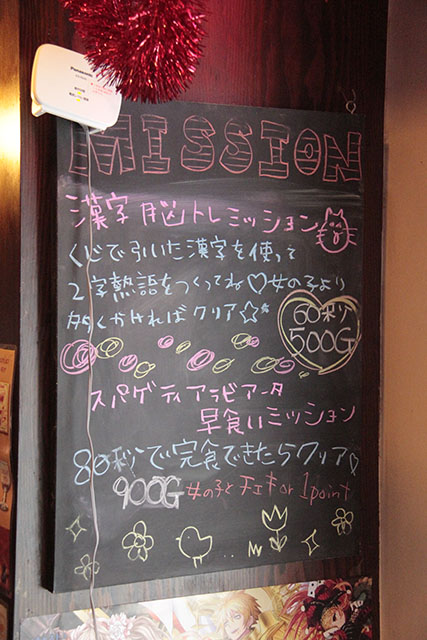 Panasonic
MISSION
漢字 脳トレミッション
くじで引いた漢字を使って
2字熟語をつくってね♡女の子より
多くかければクリア☆
60秒
500G
スパゲティアラビアータ
早食いミッション
80秒で完食できたらクリア♡
900G 女の子とチェキ or 1point